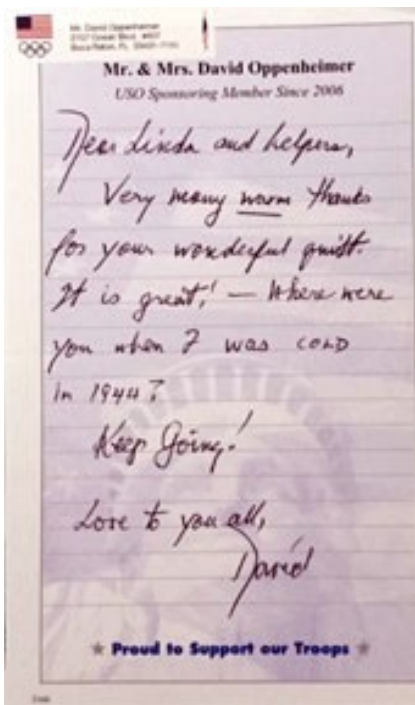 Mr. David Oppenheimer
Mr. & Mrs. David Oppenheimer
USO Sponsoring Member Since 2006
Dear Linda and helpers,
Very many warm thanks
for your wonderful quilt.
It is great! — Where were
you when I was COLD
in 1944?
Keep Going!
Love to you all,
David
★ Proud to Support our Troops ★